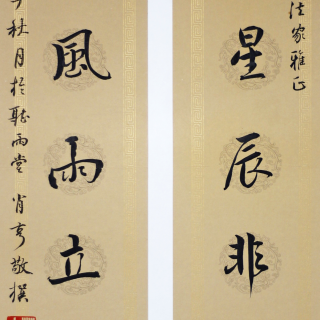 家雅正
星辰非
風雨立
秋月於聽雨堂 肖亨敬撰